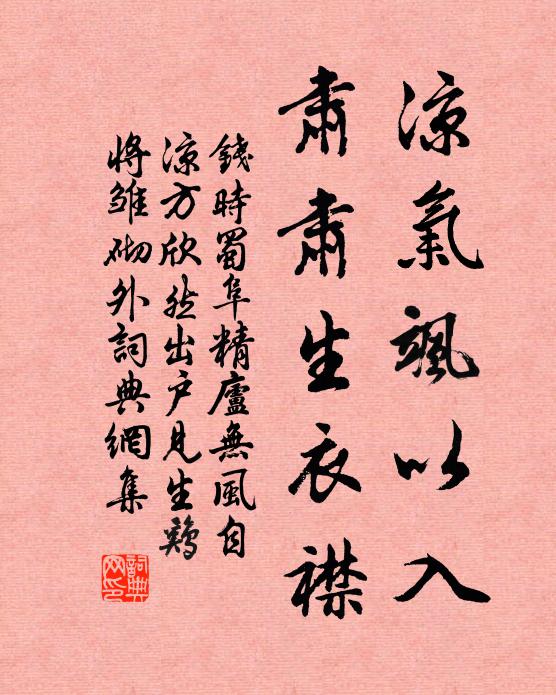 涼氣颯以入
肅肅生衣襟
錢時蜀阜精廬無風自
涼方欣然出戶見生鷄
將雏砌外詞典網集
詞典
网印